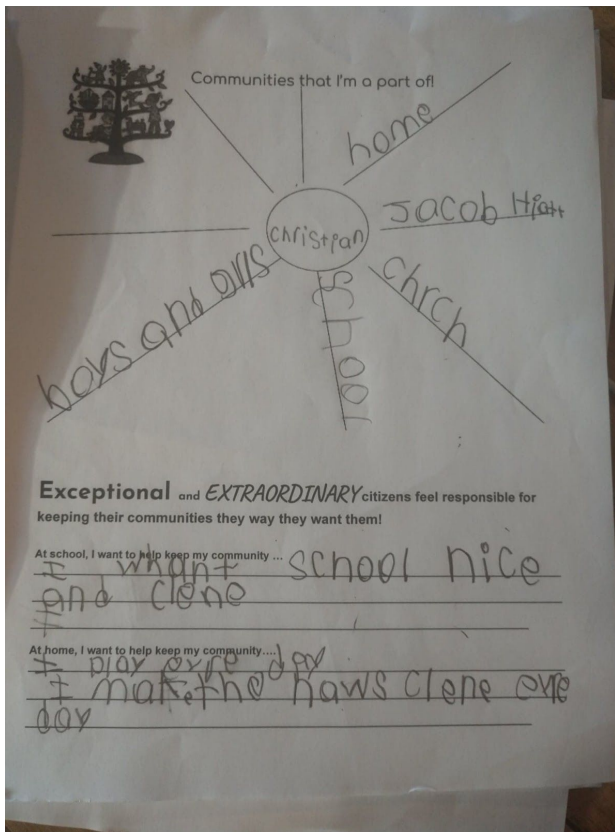 Communities that I'm a part of!
home
Jacob Hiatt
christian
chrch
school
boys and grlls
Exceptional and EXTRAORDINARY citizens feel responsible for
keeping their communities they way they want them!
At school, I want to help keep my community ...
I whant school nice
and clene
At home, I want to help keep my community....
I play evre day
I make the haws clene evre
day